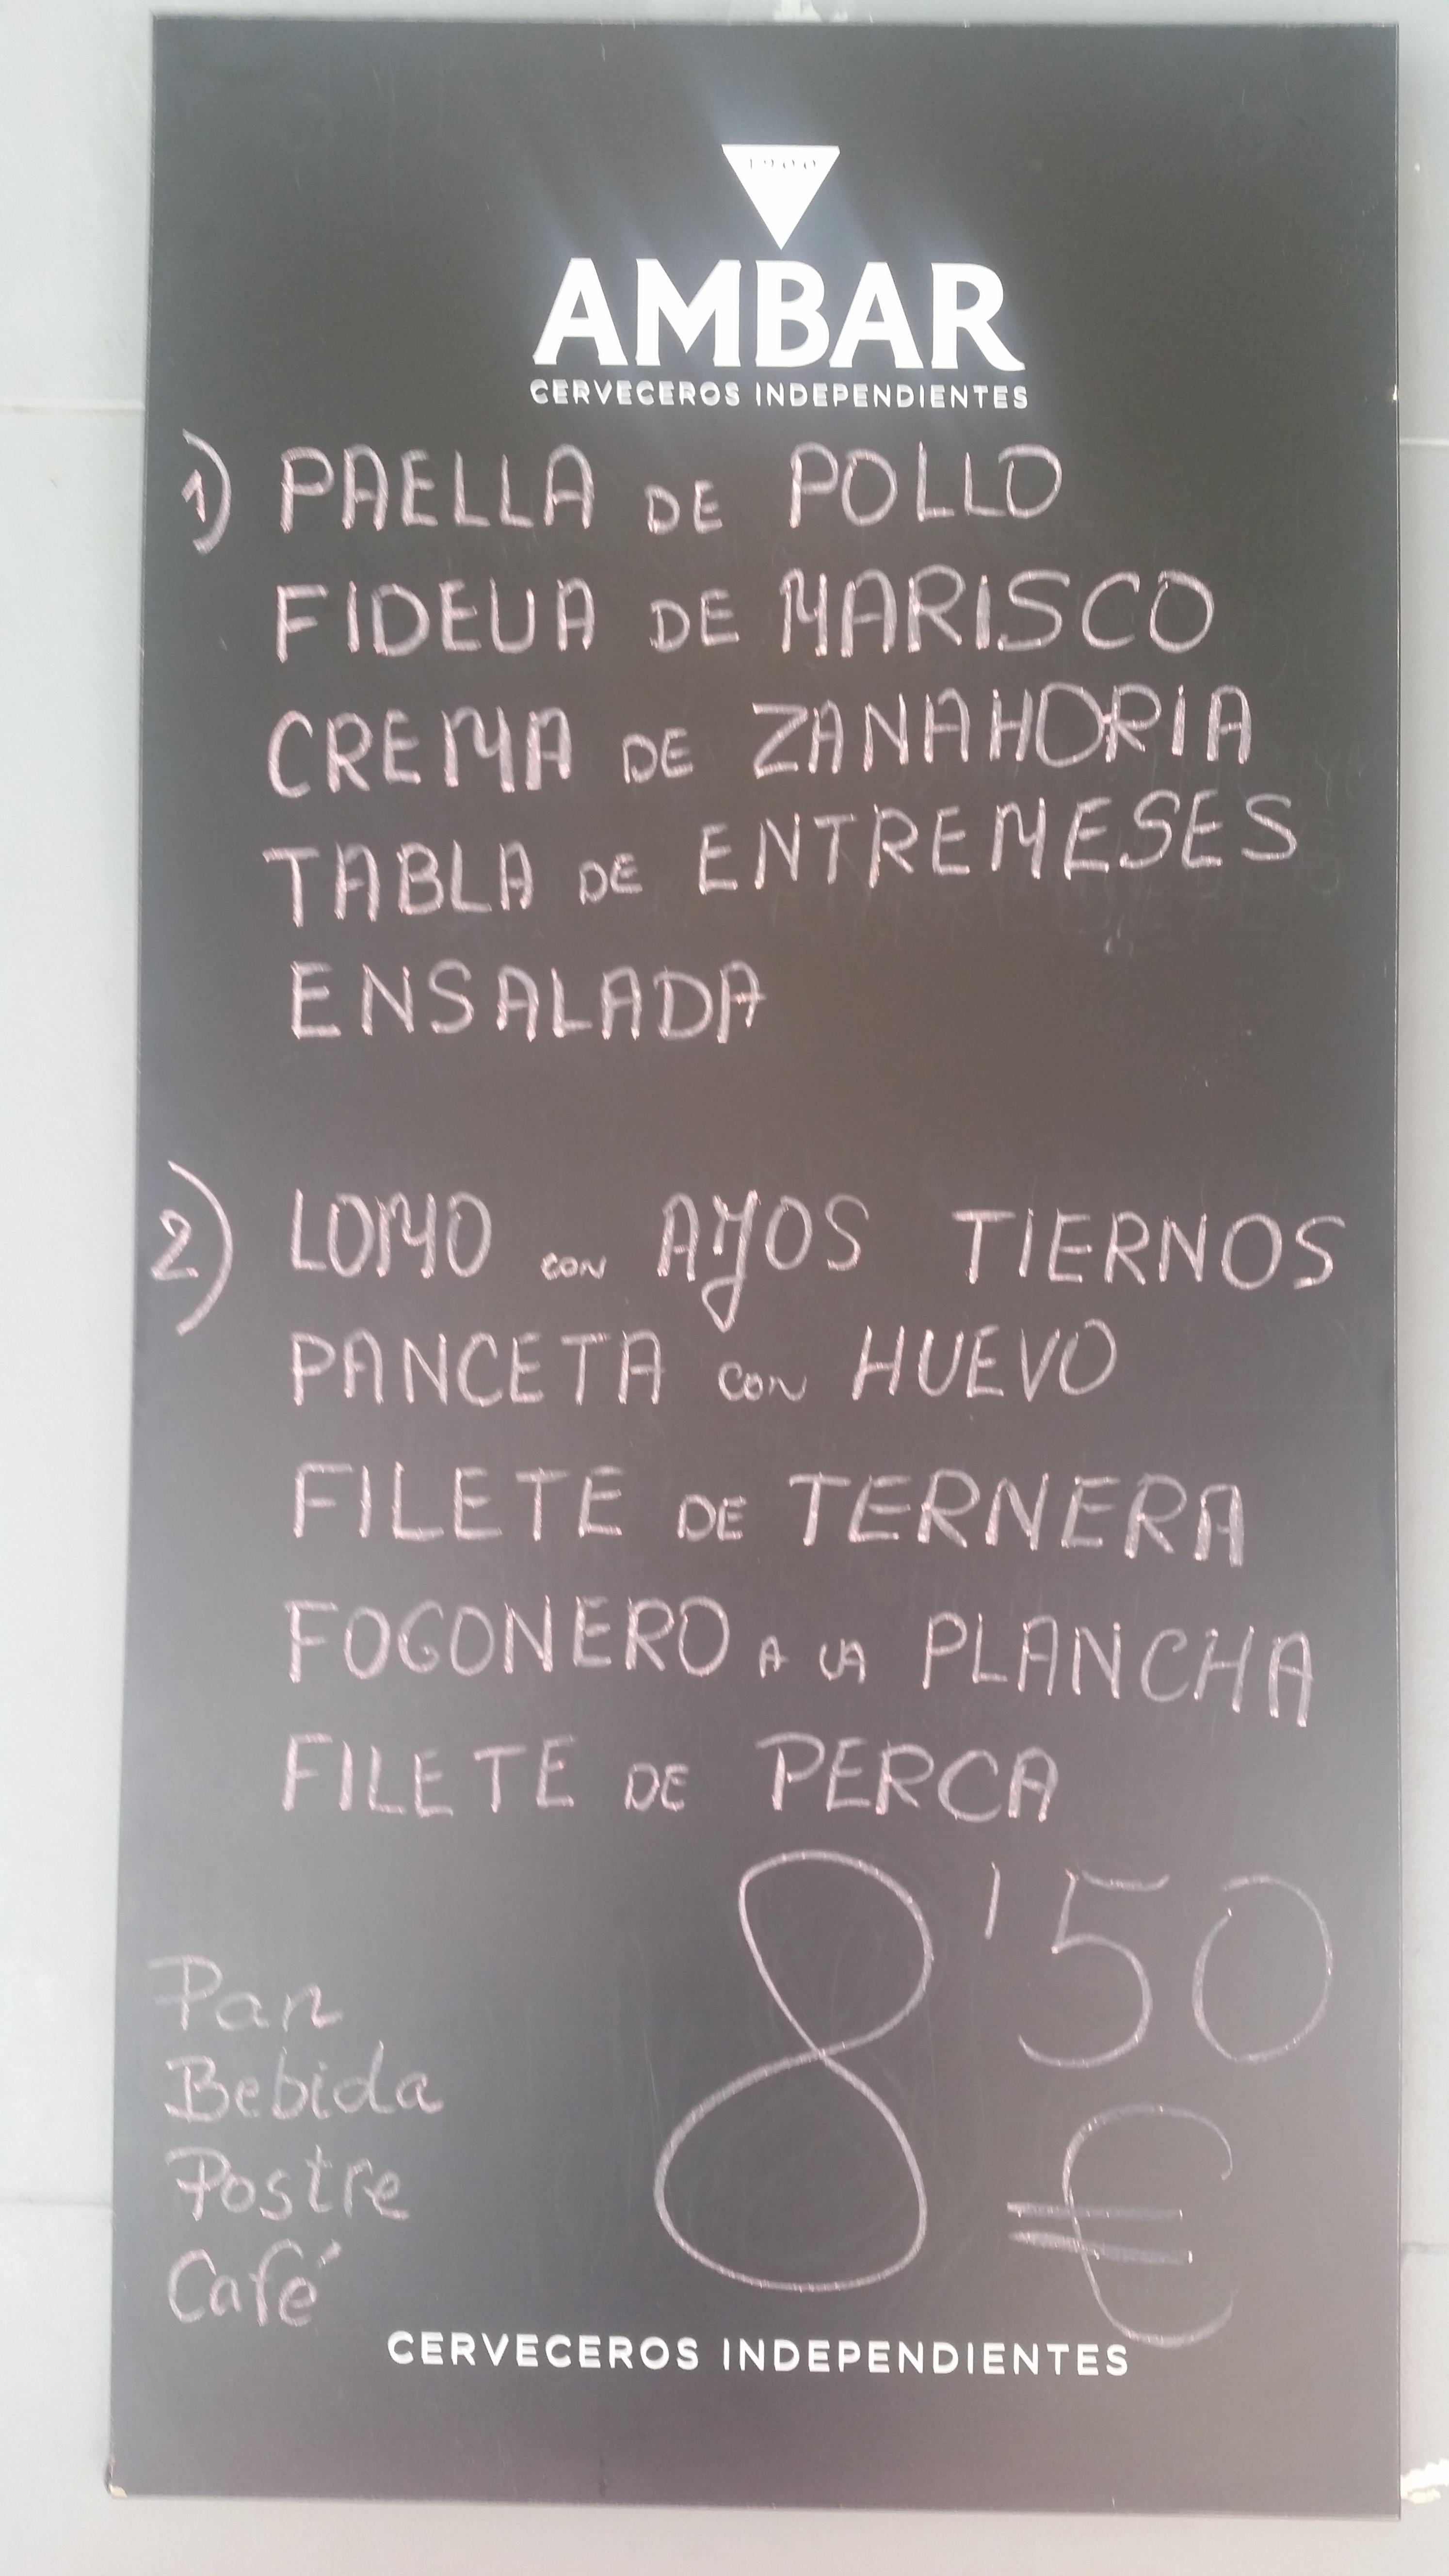 1900
AMBAR
CERVECEROS INDEPENDIENTES
1) PAELLA DE POLLO
FIDEUA DE MARISCO
CREMA DE ZANAHORIA
TABLA DE ENTREMESES
ENSALADA
2) LOMO con AJOS TIERNOS
PANCETA con HUEVO
FILETE DE TERNERA
FOGONERO A LA PLANCHA
FILETE DE PERCA
8'50
€
Pan
Bebida
Postre
Café
CERVECEROS INDEPENDIENTES